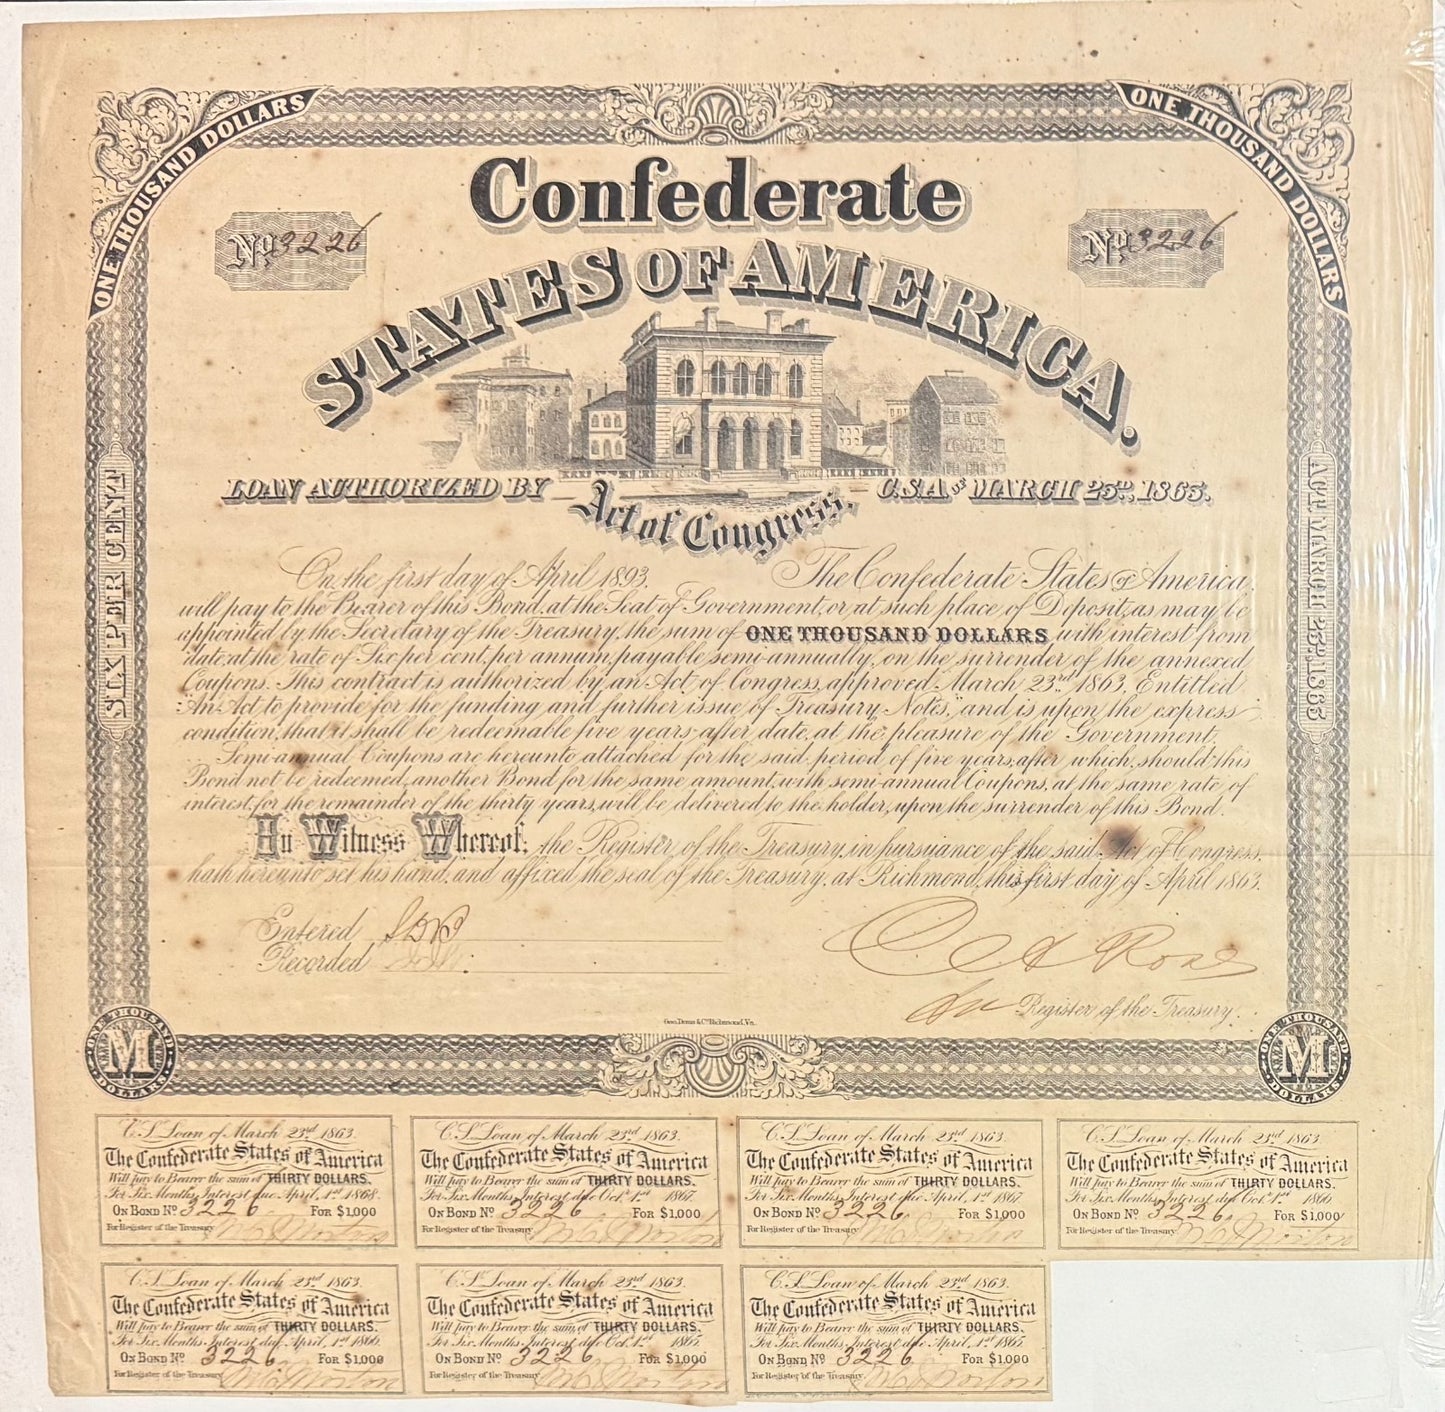 ONE THOUSAND DOLLARS
ONE THOUSAND DOLLARS
Confederate
No. 3226
No. 3226
STATES OF AMERICA.
LOAN AUTHORIZED BY Act of Congress, C.S.A. OF MARCH 23RD, 1863.
SIX PER CENT
ACT MARCH 23RD, 1863
On the first day of April 1893. The Confederate States of America,
will pay to the Bearer of this Bond, at the Seat of Government, or at such place of Deposit, as may be
appointed by the Secretary of the Treasury, the sum of ONE THOUSAND DOLLARS with interest from
date, at the rate of Six per cent, per annum, payable semi-annually, on the surrender of the annexed
Coupons. This contract is authorized by an Act of Congress, approved March 23rd 1863, Entitled
"An Act to provide for the funding and further issue of Treasury Notes," and is upon the express
condition, that it shall be redeemable five years after date, at the pleasure of the Government.
Semi-annual Coupons are hereunto attached for the said period of five years, after which, should this
Bond not be redeemed, another Bond for the same amount, with semi-annual Coupons, at the same rate of
interest, for the remainder of the thirty years, will be delivered to the holder, upon the surrender of this Bond.
In Witness Whereof, the Register of the Treasury, in pursuance of the said Act of Congress,
hath hereunto set his hand, and affixed the seal of the Treasury, at Richmond, this first day of April 1863.
Entered
Recorded
Rose
Register of the Treasury.
Geo. Dunn & Co. Richmond, Va.
ONE THOUSAND DOLLARS
M
ONE THOUSAND DOLLARS
M
C.S. Loan of March 23rd 1863.
The Confederate States of America
Will pay to Bearer the sum of THIRTY DOLLARS.
For Six Months Interest due April, 1st 1868.
ON BOND No 3226 FOR $1,000
For Register of the Treasury
C.S. Loan of March 23rd 1863.
The Confederate States of America
Will pay to Bearer the sum of THIRTY DOLLARS.
For Six Months Interest due Oct. 1st 1867.
ON BOND No 3226 FOR $1,000
For Register of the Treasury
C.S. Loan of March 23rd 1863.
The Confederate States of America
Will pay to Bearer the sum of THIRTY DOLLARS.
For Six Months Interest due April, 1st 1867.
ON BOND No 3226 FOR $1,000
For Register of the Treasury
C.S. Loan of March 23rd 1863
The Confederate States of America
Will pay to Bearer the sum of THIRTY DOLLARS.
For Six Months Interest due Oct. 1st 1866.
ON BOND No 3226 FOR $1,000
For Register of the Treasury
C.S. Loan of March 23rd 1863.
The Confederate States of America
Will pay to Bearer the sum of THIRTY DOLLARS.
For Six Months Interest due April, 1st 1866.
ON BOND No 3226 FOR $1,000
For Register of the Treasury
C.S. Loan of March 23rd 1863.
The Confederate States of America
Will pay to Bearer the sum of THIRTY DOLLARS.
For Six Months Interest due Oct. 1st 1865.
ON BOND No 3226 FOR $1,000
For Register of the Treasury
C.S. Loan of March 23rd 1863.
The Confederate States of America
Will pay to Bearer the sum of THIRTY DOLLARS.
For Six Months Interest due April, 1st 1865.
ON BOND No 3226 FOR $1,000
For Register of the Treasury